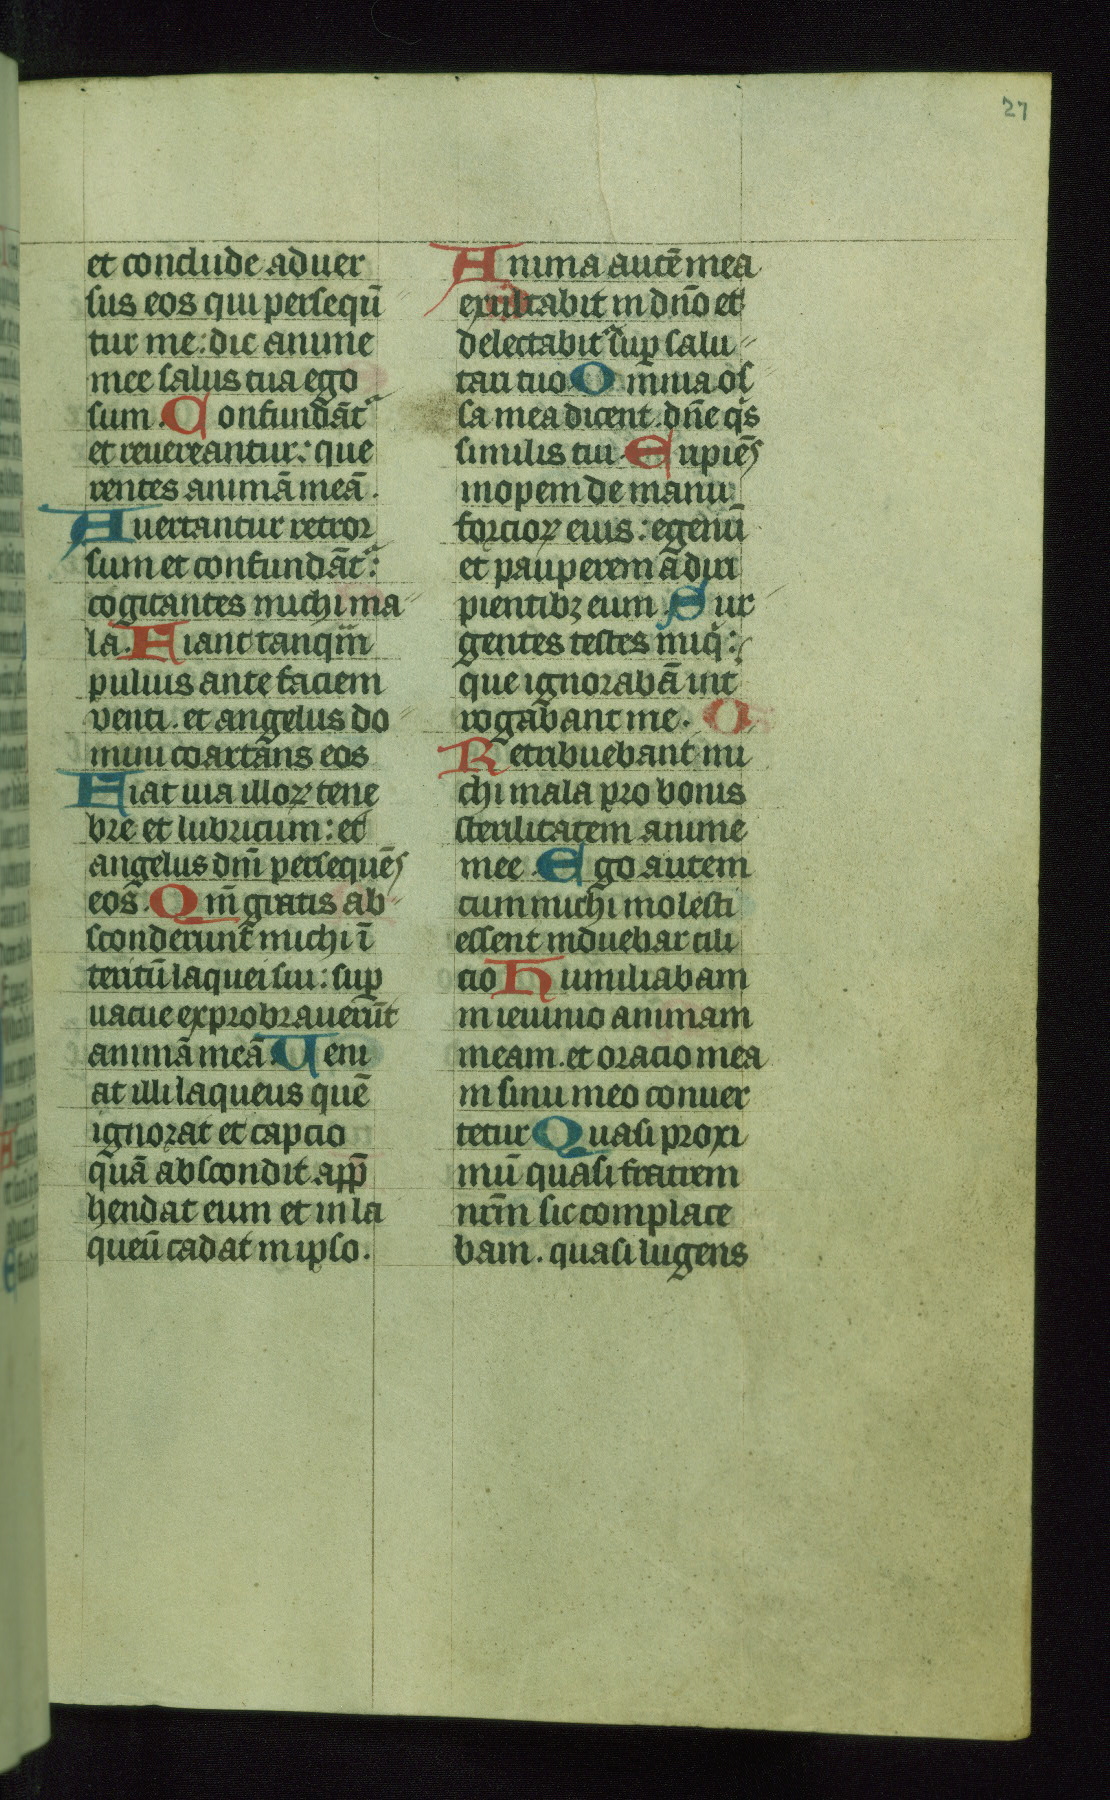 27
et conclude aduer
sus eos qui persequū
tur me: dic anime
mee salus tua ego
sum. Confundāt᷑
et reuereantur: que
rentes animā meā.
Auertantur retror
sum et confundāt᷑:
cogitantes michi ma
la. Fiant tanqm̄
puluis ante faciem
venti. et angelus do
mini coartans eos
Fiat uia illoꝝ tene
bre et lubricum: et
angelus dnī persequēs
eos. Qm̄ gratis ab
sconderunt michi ī
teritū laquei sui: suꝑ
uacue exprobrauerūt
animā meā. Ueni
at illi laqueus quē
ignorat et captio
quā abscondit appͤ
hendat eum et in la
queū cadat in ipso.
Anima autē mea
exultabit in dn̄o et
delectabit᷑ suꝑ salu
tari tuo Omnia os
sa mea dicent. dn̄e qͥs
similis tui. Eripiēs
inopem de manu
forcioꝝ eius: egenū
et pauperem a diri
pientibꝫ eum. Sur
gentes testes iniqͥ:
que ignorabā int
rogabant me.
Retribuebant mi
chi mala pro bonis
sterilitatem anime
mee. Ego autem
cum michi molesti
essent induebar cili
cio Humiliabam
in ieiunio animam
meam. et oracio mea
in sinu meo conuer
tetur Quasi proxi
mū quasi fratrem
nr̄m sic complace
bam. quasi lugens